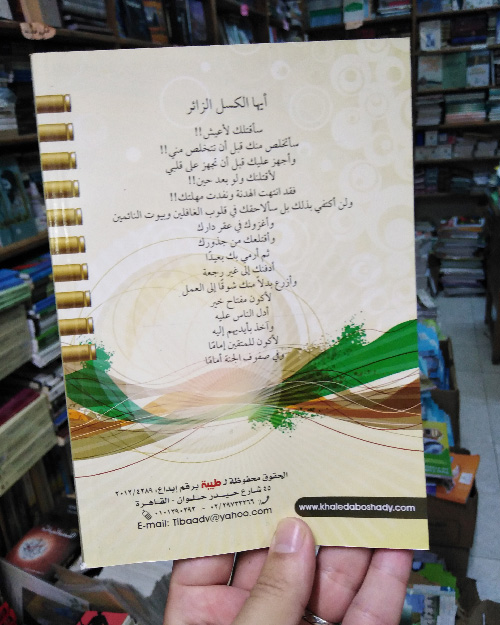 أيها الكسل الزائر
سأقتلك لأعيش!!
سأتخلص منك قبل أن تتخلص مني!!
وأجهز عليك قبل أن تجهز على قلبي
لأقتلنك ولو بعد حين!!
فقد انتهت الهدنة ونفدت مهلتك!!
ولن أكتفي بذلك بل سألاحقك في قلوب الغافلين وبيوت النائمين
وأغزوك في عقر دارك
وأقتلعك من جذورك
ثم أرمي بك بعيدًا
أدفنك إلى غير رجعة
وأزرع بدلاً منك شوقًا إلى العمل
لأكون مفتاح خير
أدل الناس عليه
وآخذ بأيديهم إليه
لأكون للمتقين إمامًا
وفي صفوف الجنة أمامًا
الحقوق محفوظة لـ طيبة برقم إيداع: ٢٠١٢/٤٢٨٩
٤٥ شارع حيدر حلوان - القاهرة
E-mail: Tibaadv@yahoo.com
www.khaledaboshady.com